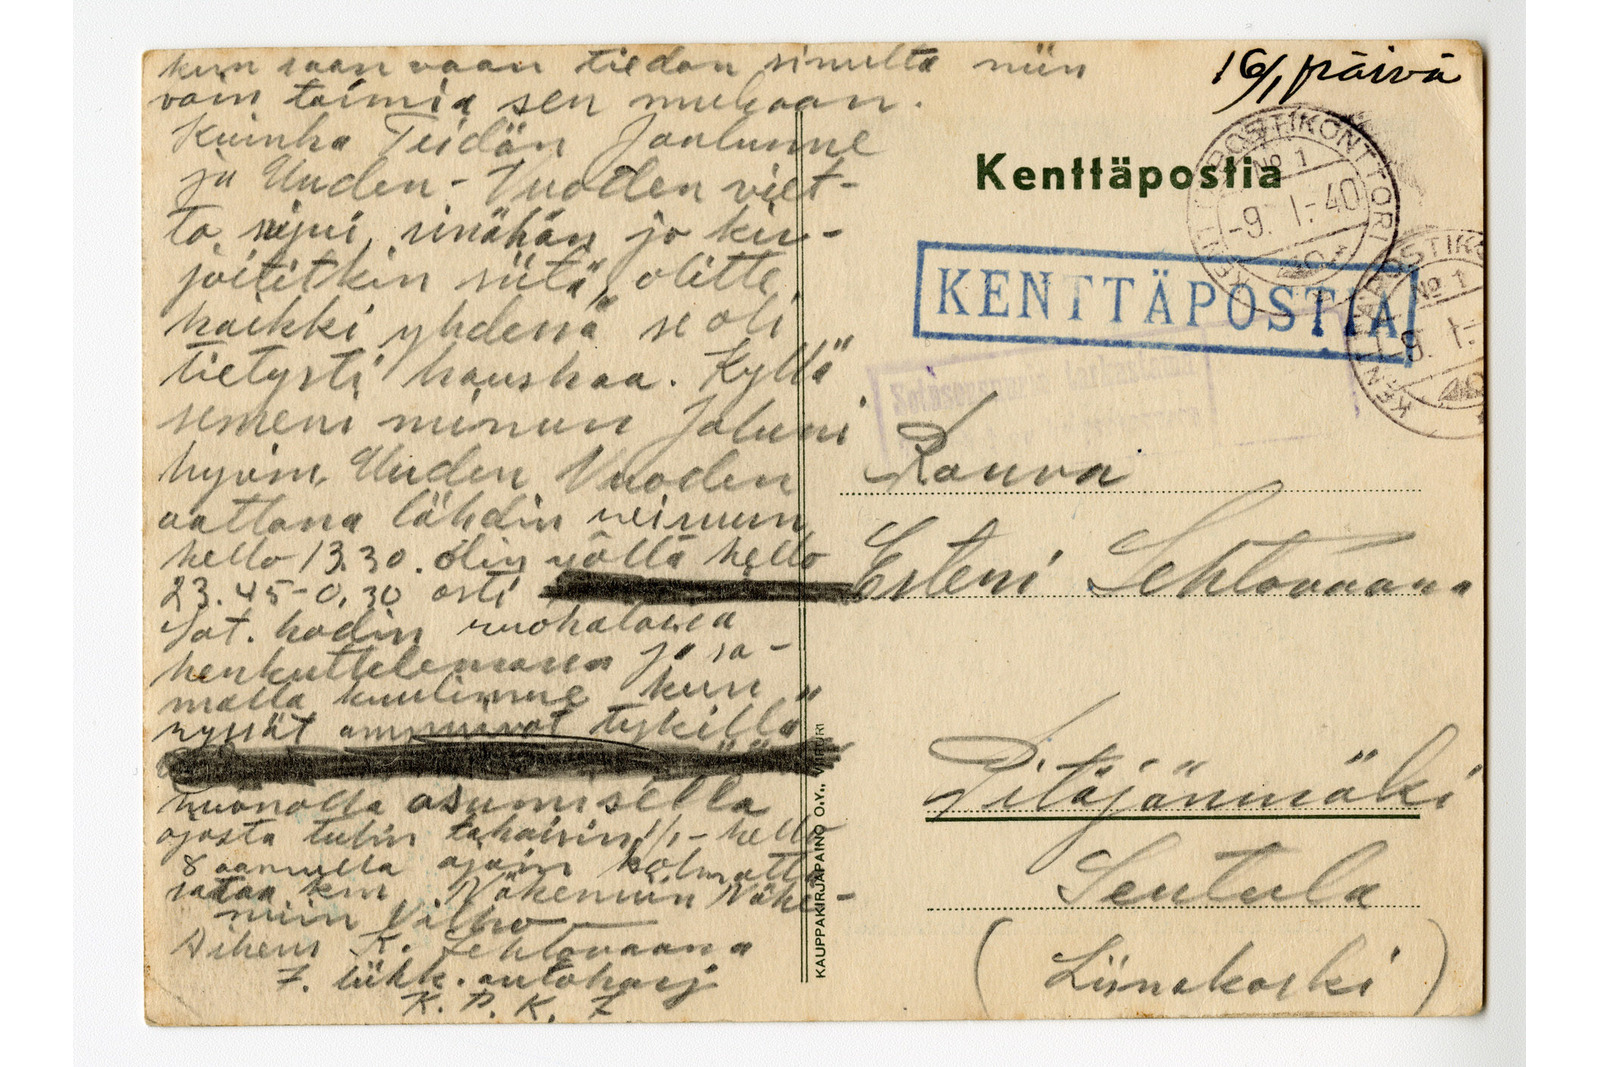 kun saan vaan tiedon sinulta niin
voin toimia sen mukaan.
Kuinka Teidän Joulunne
ja Uuden-Vuoden viet-
to sujui, sinähän jo kir-
joititkin siitä, olitte
kaikki yhdessä se oli
tietysti hauskaa. Kyllä
se meni minun Joluni
hyvin, Uuden Vuoden
aattona lähdin
kello 13.30. olin yöllä kello
23.45-0,30 asti
hodin ruokatassa
henkuttelemassa ja sa-
malla kuulimme kun
ryssät ampuivat tykillä
asumisella
ajosta tulin takaisin 1/1- kello
8 aamulla ajoin kolmatta
sataa km Näkemiin Näke-
miin Vilho
K. Lehtovaara
7. autokorj
K. P. K. 7
16/1 päivä
Kenttäpostia
KENTTÄPOSTIA
KENTTÄPOSTIKONTTORI
No 1
-9. 1.-40
KENTTÄPOSTIKO
No 1
9. 1.-
Rouva
Esteri Lehtovaara
Pitäjänmäki
Seutula
(Liinakoski)
KAUPPAKIRJAPAINO O.Y., VIIPURI